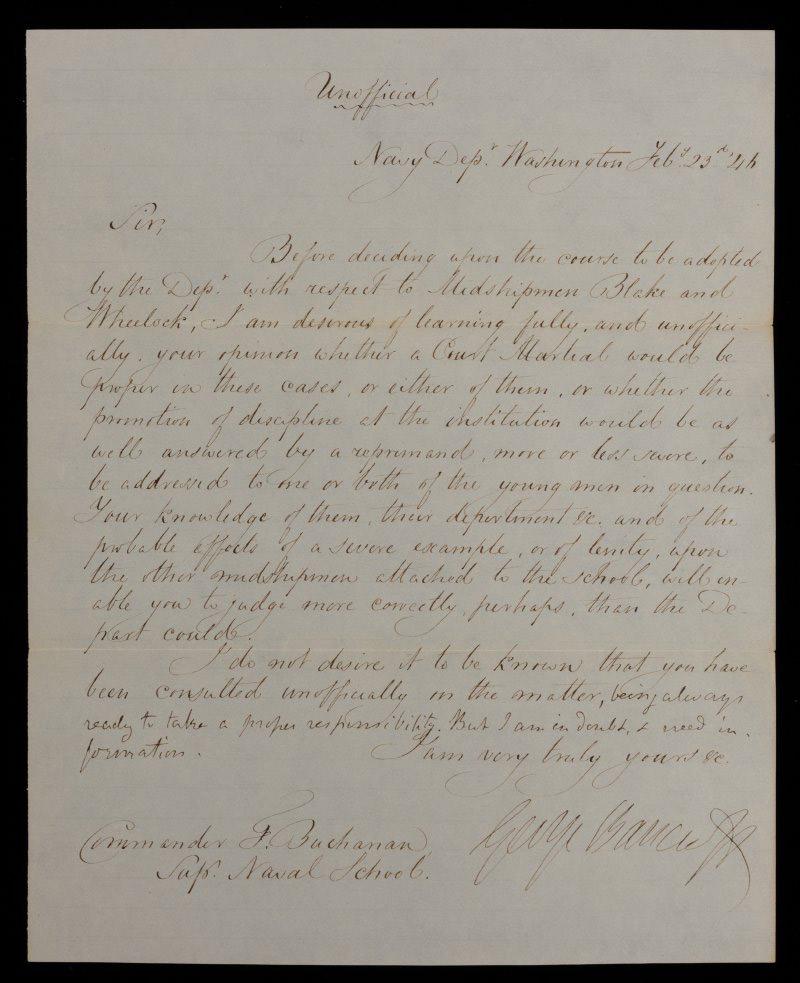 Unofficial
Navy Dept. Washington Feby. 23d '46
Sir,
Before deciding upon the course to be adopted
by the Dept. with respect to Midshipmen Blake and
Wheelock, I am desirous of learning fully, and unoffici-
ally, your opinion whether a Court Martial would be
proper in these cases, or either of them, or whether the
promotion of discipline at the institution would be as
well answered by a reprimand, more or less severe, to
be addressed to one or both of the young men in question.
Your knowledge of them, their deportment &c. and of the
probable effects of a severe example, or of lenity, upon
the other midshipmen attached to the school, will en-
able you to judge more correctly, perhaps, than the De-
part could.
I do not desire it to be known that you have
been consulted unofficially on the matter, being always
ready to take a proper responsibility. But I am in doubt, & need in-
formation.
I am very truly yours &c.
George Bancroft
Commander F. Buchanan,
Supt. Naval School.